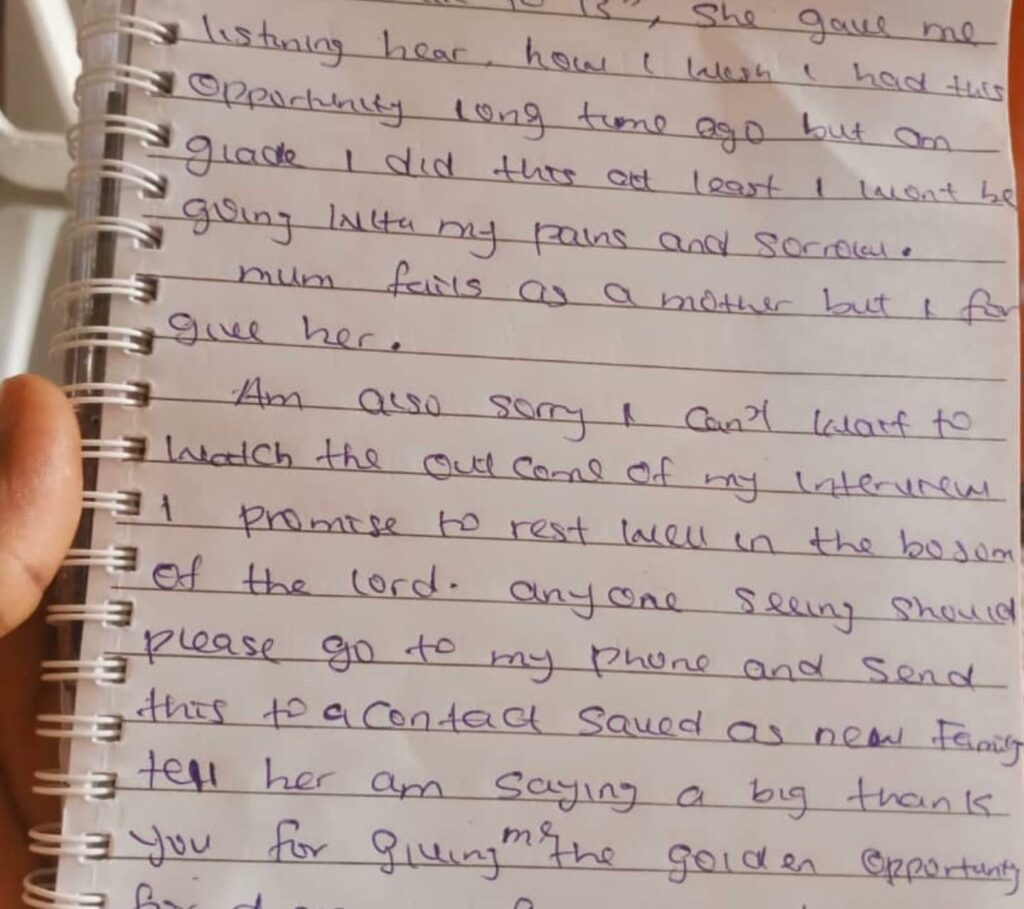 to 13", She gave me
listning hear, how I wish I had this
opportunity long time ago but am
glade I did this att least I wont be
going with my pains and sorrow.
mum fails as a mother but I for
give her.
Am also sorry I can't wait to
watch the out come of my interview
I promise to rest well in the bosom
of the lord. anyone seeing should
please go to my phone and send
this to a contact saved as new Family
tell her am saying a big thank
you for giving me the golden opportunity